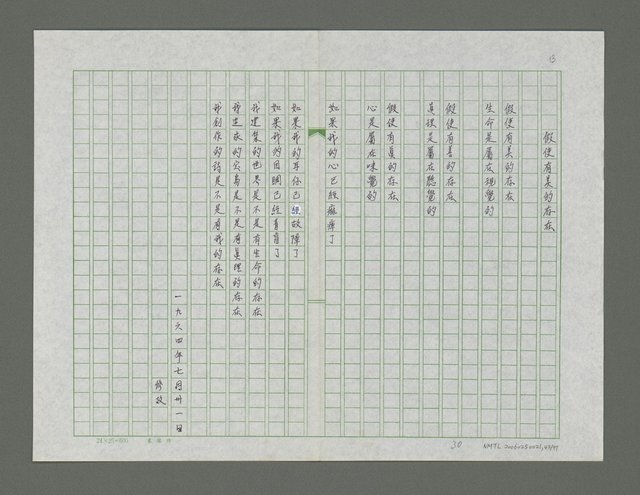 13
假使有美的存在
假使有美的存在
生命是屬在視覺的
假使有善的存在
真理是屬在聽覺的
假使有真的存在
心是屬在味覺的
如果我的心已經麻痺了
如果我的耳朵已經故障了
如果我的目睭已經青盲了
我建築的世界是不是有生命的存在
我追求的公義是不是有真理的存在
我創作的詩是不是有我的存在
一九六四年七月卅一日
修改
24×25=600
30
NMTL 20060250021